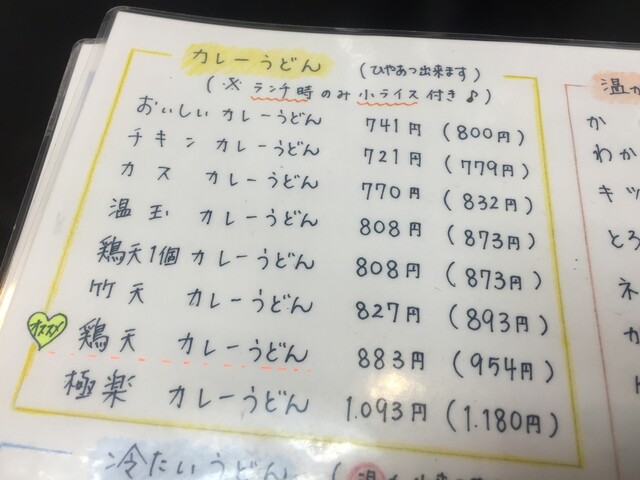 カレーうどん (ひやあつ出来ます)
(※ランチ時のみ小ライス付き♪)
おいしいカレーうどん 741円 (800円)
チキンカレーうどん 721円 (779円)
カス カレーうどん 770円 (832円)
温玉 カレーうどん 808円 (873円)
鶏天1個 カレーうどん 808円 (873円)
竹天 カレーうどん 827円 (893円)
オススメ 鶏天 カレーうどん 883円 (954円)
極楽 カレーうどん 1.093円 (1.180円)
冷たいうどん (温
温か
か
わか
キツ
とろ
ネ
か